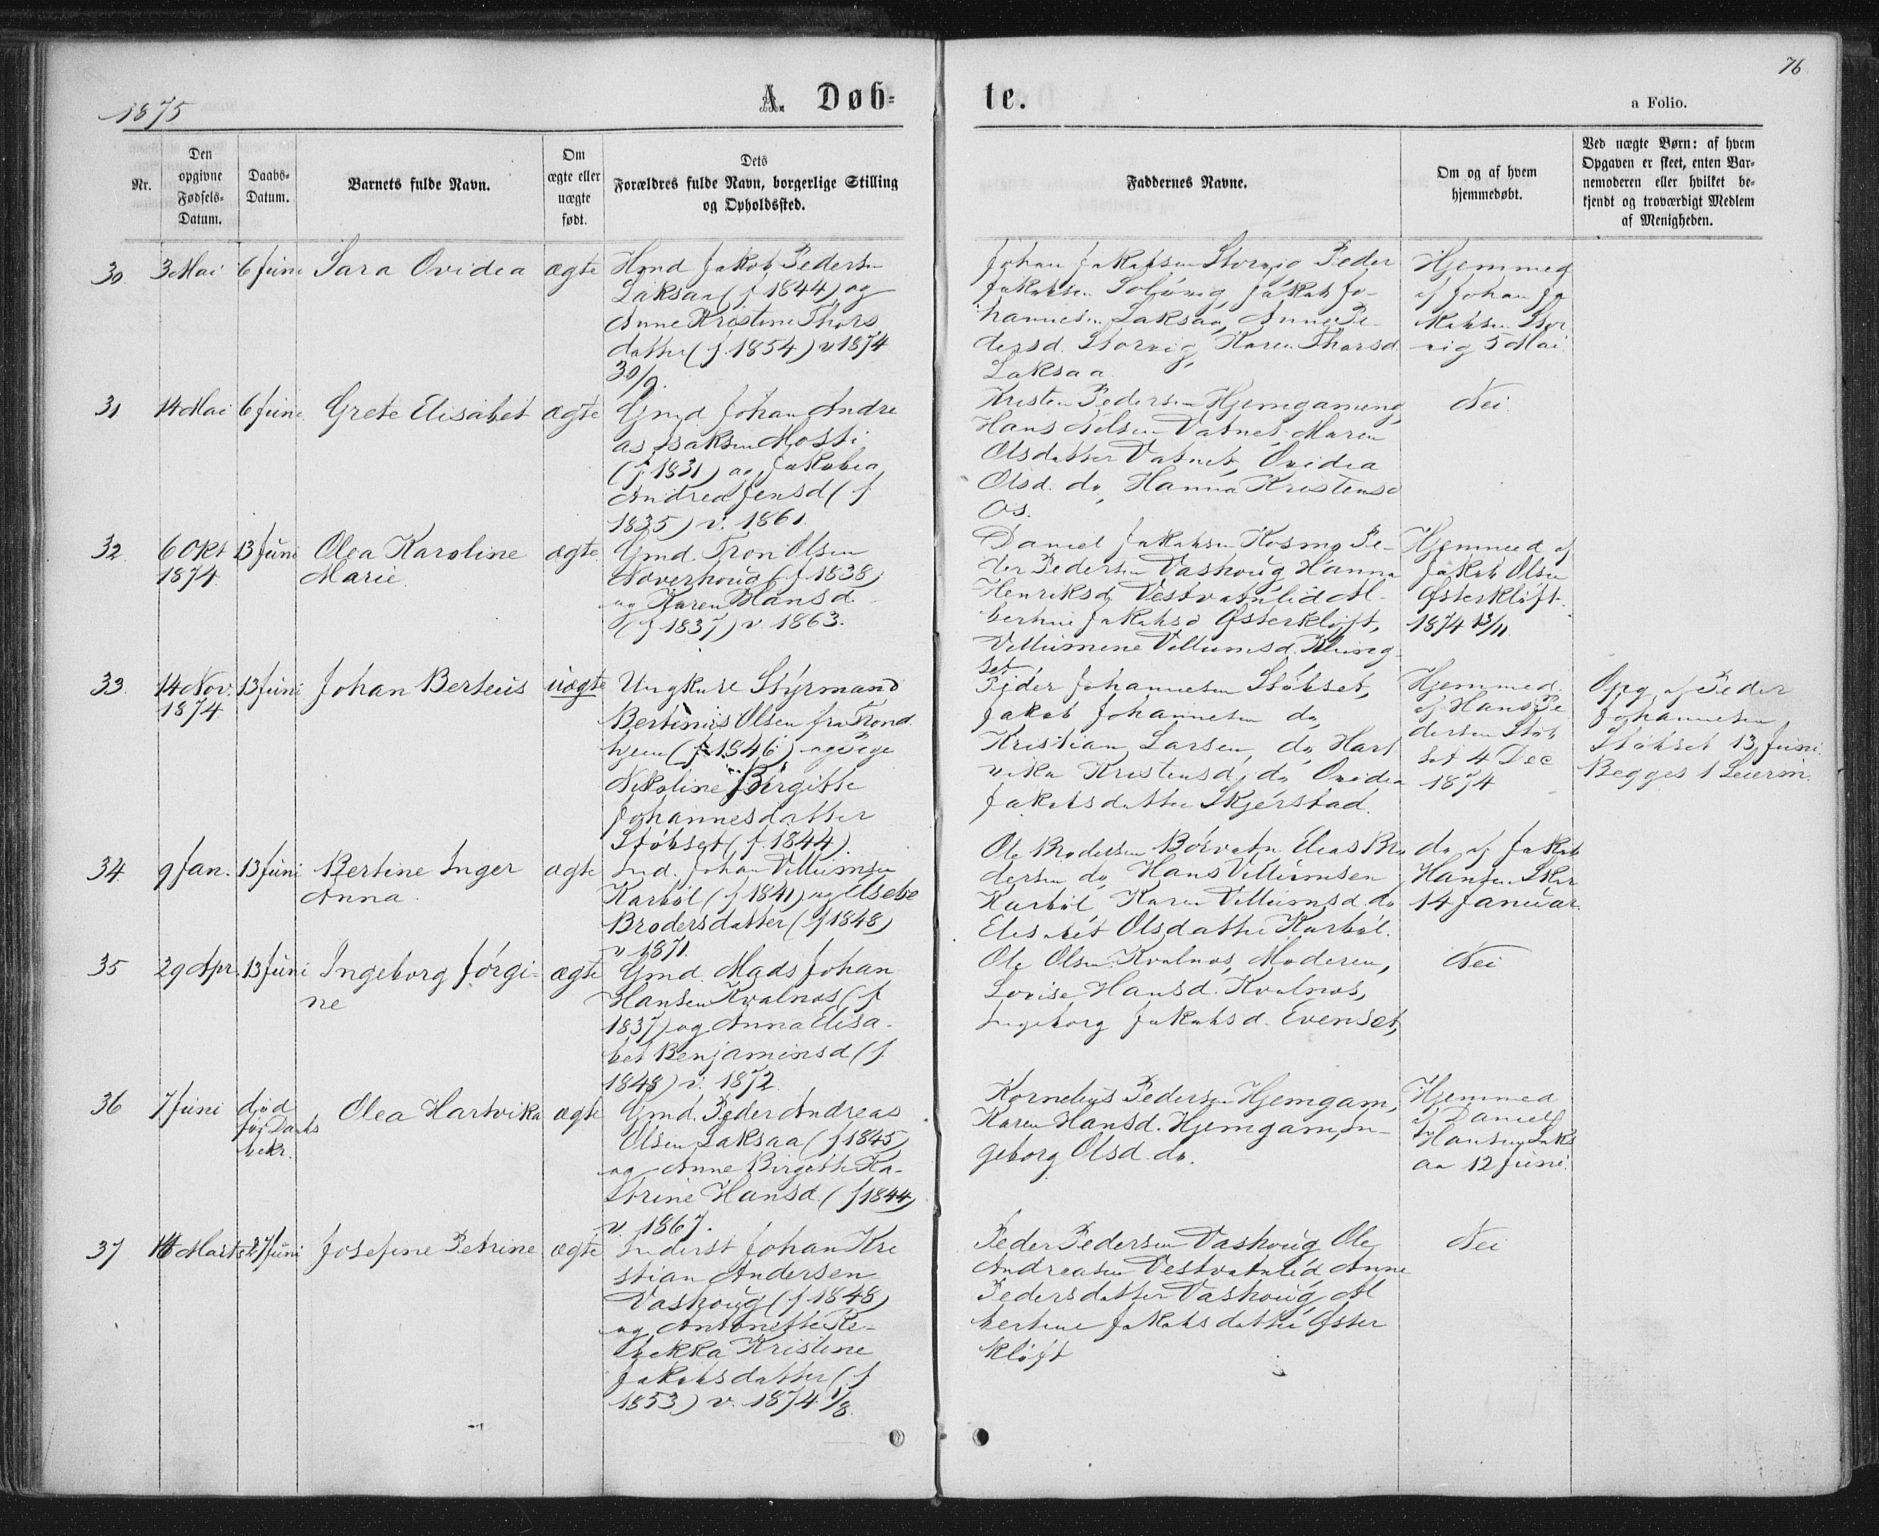 1875
A. Døb=
Nr.
Den
opgivne
Fødsels-
Datum.
Daabs-
Datum.
Barnets fulde Navn.
Om
ægte eller
uægte
født.
Dets
Forældres fulde Navn, borgerlige Stilling
og Opholdssted.
30
3 Mai
6 Juni
Sara Ovidea
ægte
Hmd Jakob Peders
Laksaa (f 1844) og
Anne Kristine Thors
datter (f 1854) v 1874
30/9.
31
14 Mai
6 Juni
Grete Elisabet
ægte
Gmd. Johan Andre
as Isaksen Mosti
(f 1831) og Jakobia
Andrea Jensd (f
1835) v. 1861.
32
6 Okt
1874
13 Juni
Olea Karoline
Marie
ægte
Gmd. Tron Olsen
Noverhoug (f 1838)
og Karen Hansd
(f 1837) v. 1863.
33
14 Nov.
1874
13 Juni
Johan Berteus
uægte
Ungkarl Styrmand
Bertinius Olsen fra Trond
hjem (f 1846) og Pige
Nikoline Birgitte
Johannesdatter
Støbset (f. 1844).
34
9 Jan.
13 Juni
Bertine Inger
Anna
ægte
Ind. Johan Villumsen
Karbøl (f 1841) og Elsebe
Brodersdatter (f 1848)
v 1871.
35
29 Apr.
13 Juni
Ingeborg Jørgi-
ne
ægte
Gmd. Mads Johan
Hansen Kvalnos (f
1837) og Anna Elisa-
bet Benjaminsd (f.
1848) v. 1872.
36
7 Juni
død
før Daabs
bekr.
Olea Hartvika
ægte
Gmd. Peder Andreas
Olsen Laksaa (f 1845)
og Anne Birgitte Ka-
trine Hansd. (f 1844)
v. 1867.
37
Marts
27 Juni
Josefine Petrine
ægte
Inderst Johan Kri
stian Andersen
Vashoug (f 1848)
og Antonette Re-
bekka Kristine
Jakobsdatter (f
1853) v. 1874 1/8.
76
te.
a Folio.
Faddernes Navne.
Om og af hvem
hjemmedøbt.
Ved uægte Børn: af hvem
Opgaven er skeet, enten Bar-
nemoderen eller hvilket be-
kjendt og troværdigt Medlem
af Menigheden.
Johan Jakobsen Storvig Peder
Jakobsen Solsvig, Jakob Jo-
hannesen Laksaa, Anne Pe-
dersd. Storvig, Karen Thorsd
Laksaa
Hjemmed
af Johan Ja
kobsen Stor
vig 5 Mai
Kristen Pedersen Hjemgameng,
Hans Nilsen Vatnet Maren
Olsdatter Vatnet, Ovidea
Olsd. do, Hanna Kristensd
Os.
Nei
Daniel Jakobsen Kosmo Pe-
der Pedersen Vashoug Hanna
Henriksd Vestvatnlid Al-
bertine Jakobsd Østerkløft,
Villumine Villumsd. Kling
set
Hjemmed af
Jakob Olsen
Østerkløft
1874 13/11
Peder Johannesen Støbset,
Jakob Johannesen do,
Kristian Larsen do Hart
vika Kristensd, do Ovidea
Jakobsdatter Skjerstad
Hjemmed
af Hans Pe
dersen Støb
set 4 Dec
1874
Opg af Peder
Johannesen
Støbset 13 Juni.
Begges 1 Leierm.
Ole Brodersen Børvatn Elias Bro
dersen do, Hans Villumsen
Karbøl, Karen Villumsd. do
Elisabet Olsdatter Karbøl.
do af Jakob
Hansen Skar
14 Januar
Ole Olsen Kvalnos, Moderen,
Lovise Hansd. Kvalnos,
Ingeborg Jakobsd. Evenset,
Nei
Kornelius Pedersen Hjemgam,
Karen Hansd. Hjemgam, In-
geborg Olsd. do.
Hjemmed
af Daniel
Hansen Laks
aa 12 Juni.
Peder Pedersen Vashoug Ole
Andreasen Vestvatnlid Anne
Pedersdatter Vashoug Al
bertine Jakobsdatter Øster
kløft
Nei